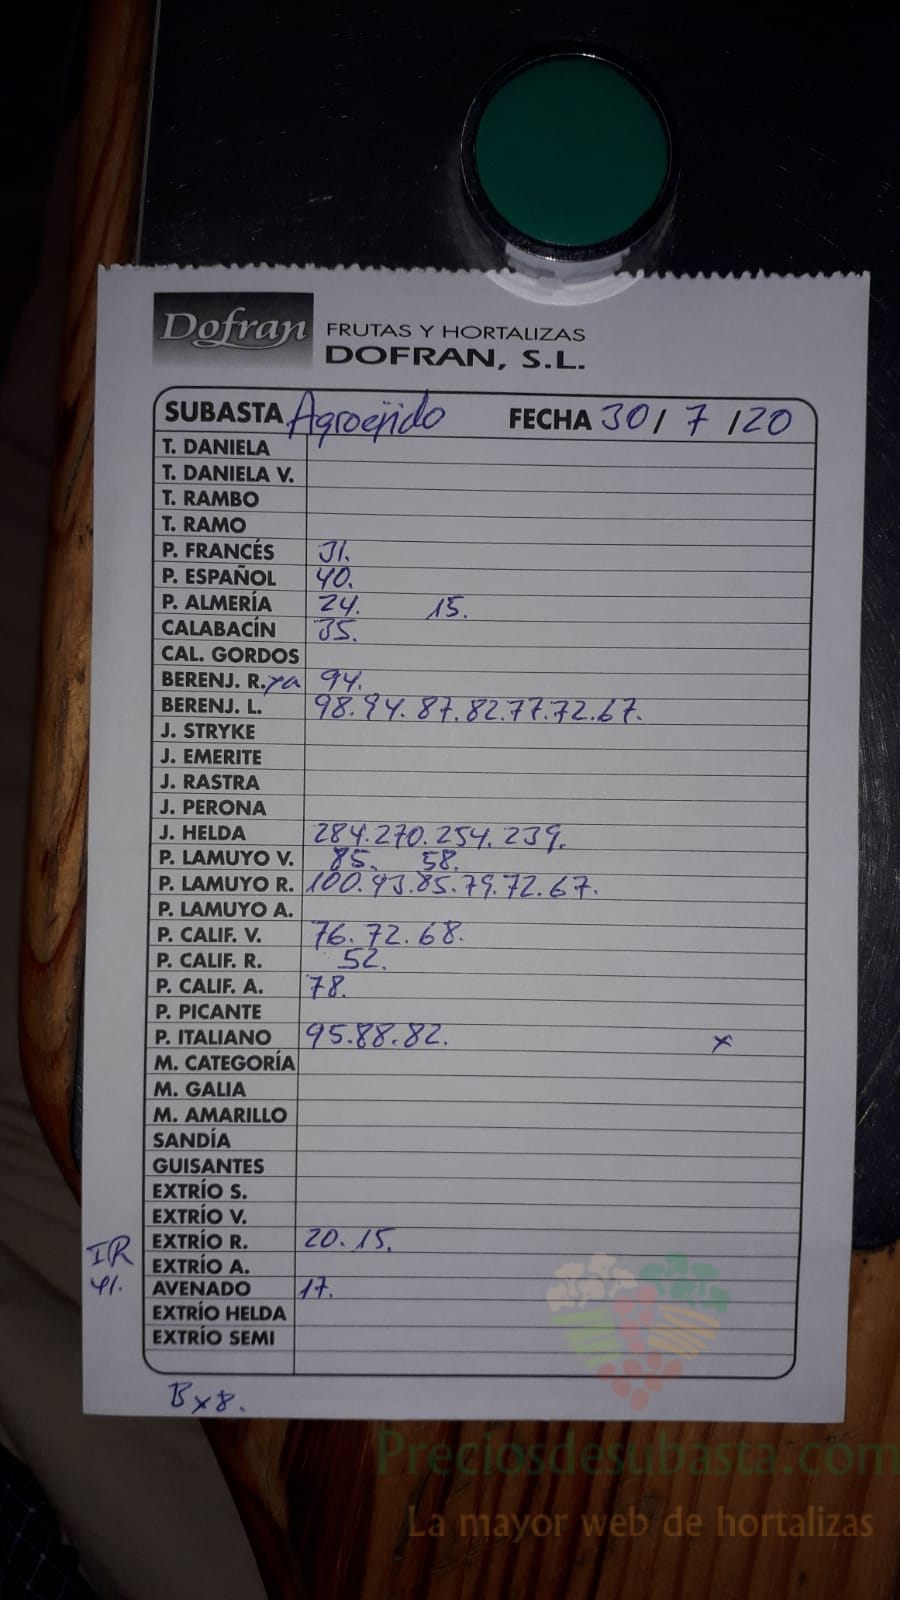 Dofran FRUTAS Y HORTALIZAS
DOFRAN, S.L.
SUBASTA Agroejido FECHA 30/ 7 /20
T. DANIELA
T. DANIELA V.
T. RAMBO
T. RAMO
P. FRANCÉS 31.
P. ESPAÑOL 40.
P. ALMERÍA 24. 15.
CALABACÍN 35.
CAL. GORDOS
BERENJ. R.ya 94.
BERENJ. L. 98.94.87.82.77.72.67.
J. STRYKE
J. EMERITE
J. RASTRA
J. PERONA
J. HELDA 284.270.254.239.
P. LAMUYO V. 85. 58.
P. LAMUYO R. 100.93.85.79.72.67.
P. LAMUYO A.
P. CALIF. V. 76.72.68.
P. CALIF. R. 52.
P. CALIF. A. 78.
P. PICANTE
P. ITALIANO 95.88.82. x
M. CATEGORÍA
M. GALIA
M. AMARILLO
SANDÍA
GUISANTES
EXTRÍO S.
EXTRÍO V.
EXTRÍO R. 20.15.
IR
EXTRÍO A.
41. AVENADO 17.
EXTRÍO HELDA
EXTRÍO SEMI
Bx8.
Preciosdesubasta.com
La mayor web de hortalizas